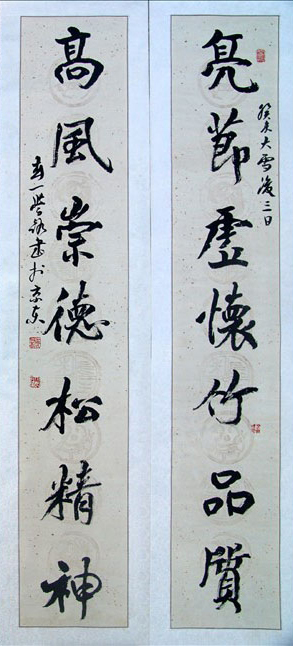 亮節虛懷竹品質
癸未大雪後三日
高風崇德松精神
書於京東